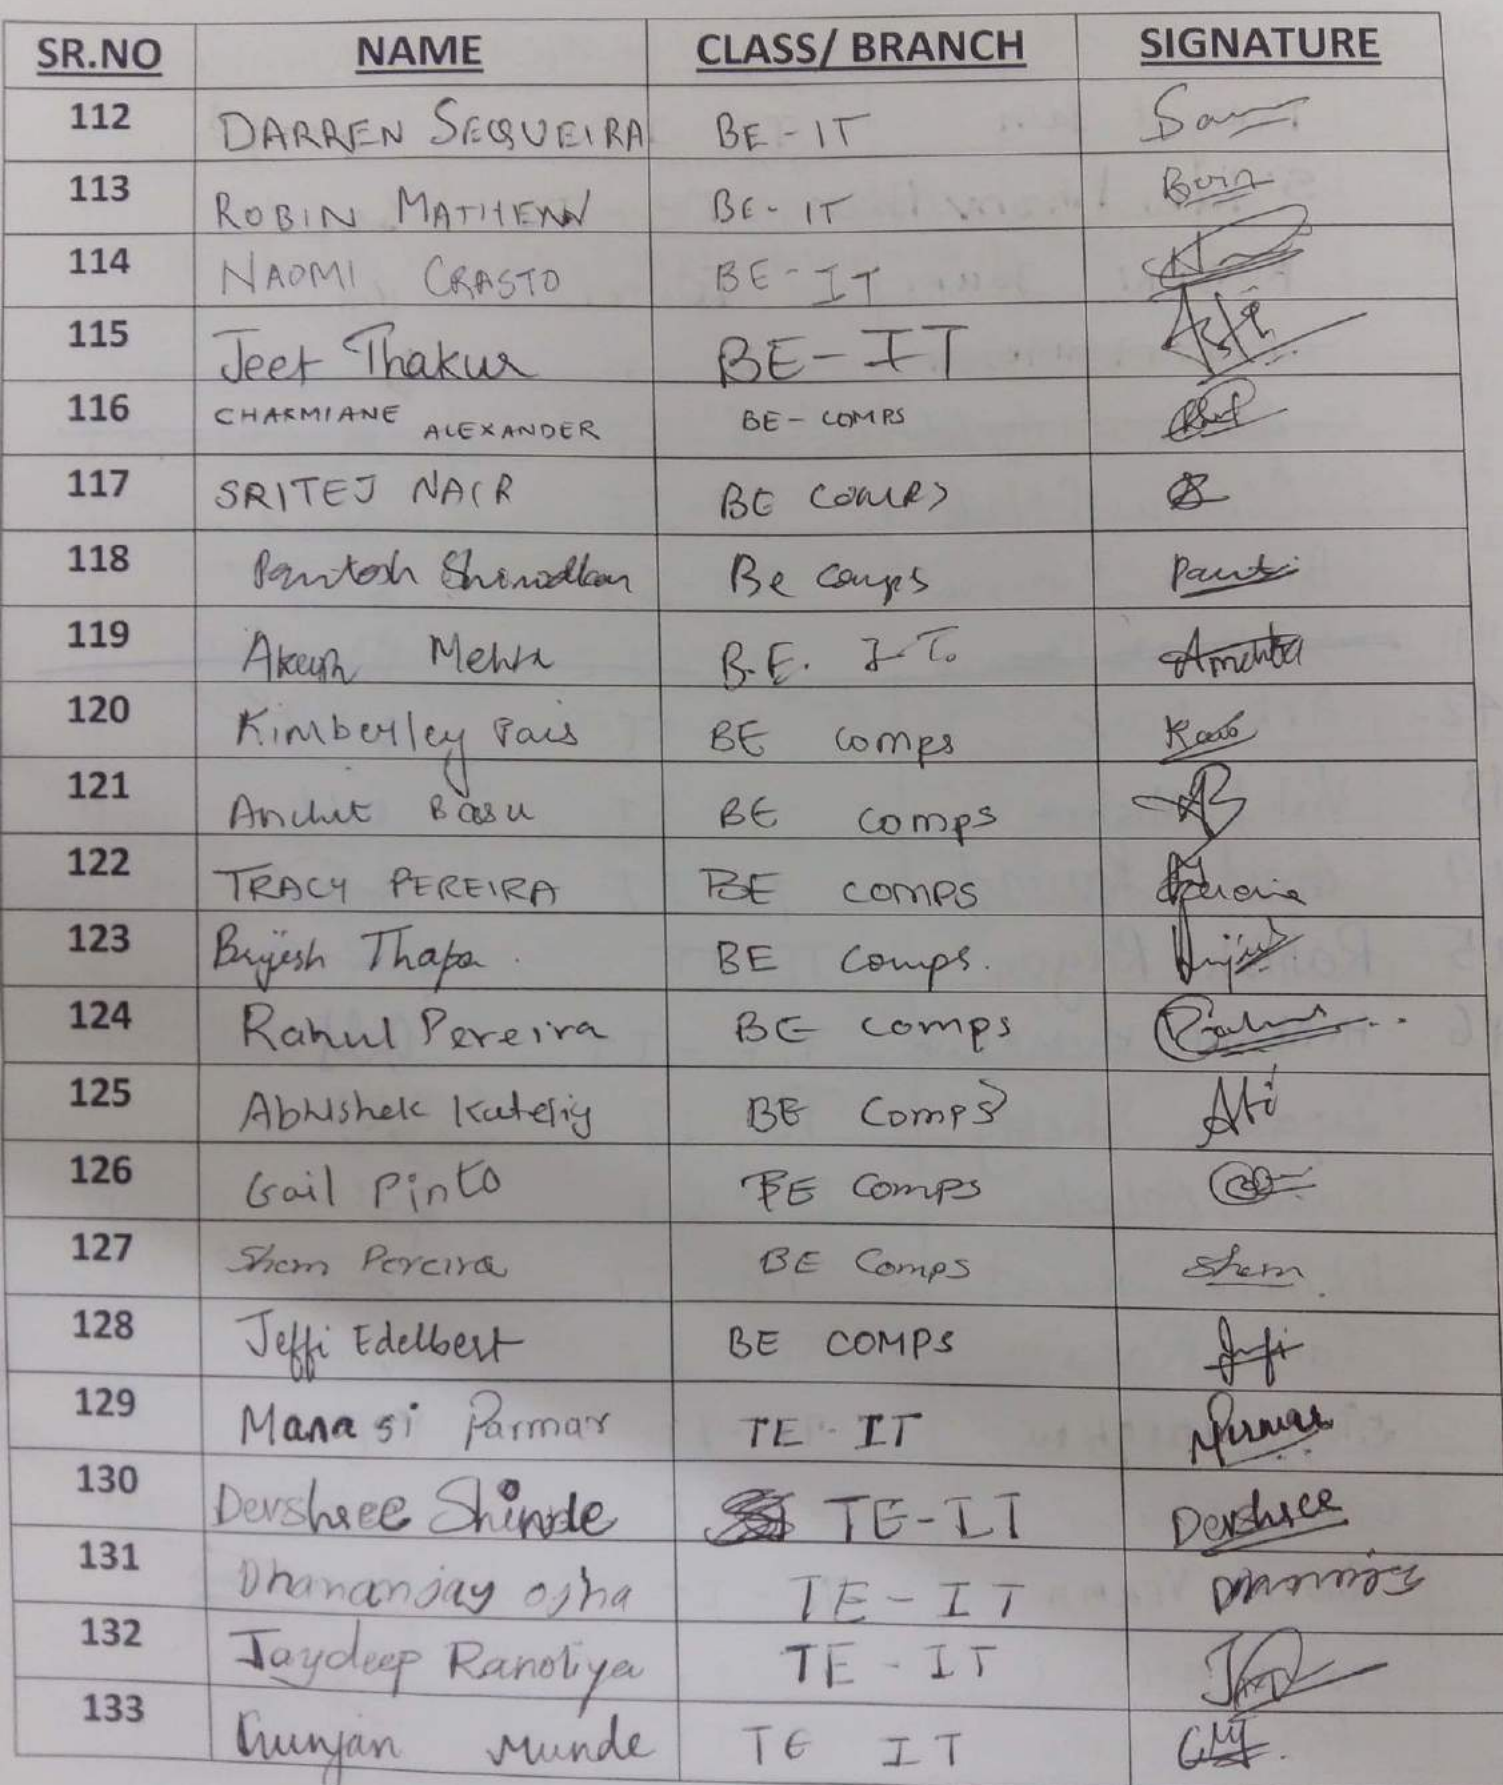 SR.NO NAME CLASS/ BRANCH SIGNATURE
112 DARREN SEQUEIRA BE-IT
113 ROBIN MATHEW BE-IT
114 NAOMI CRASTO BE-IT
115 Jeet Thakur BE-IT
116 CHARMIANE ALEXANDER BE-COMPS
117 SRITEJ NAIR BE COMPS
118 Shirodkar Be comps
119 Akash Mehta B.E. I.T. Amehta
120 Kimberley Pais BE comps
121 Anchit Basu BE comps
122 TRACY PEREIRA BE COMPS
123 Brijesh Thapa. BE comps.
124 Rahul Pereira BE comps
125 Abhishek BE Comps
126 Gail Pinto BE Comps
127 Shem Pereira BE Comps Shem.
128 Jeffi Edelbert BE COMPS
129 Manasi Parmar TE-IT
130 Devshree Shinde TE-IT Devshree
131 Dhananjay ojha TE-IT
132 Jaydeep Ranoliya TE-IT
133 Gunjan Munde TE IT